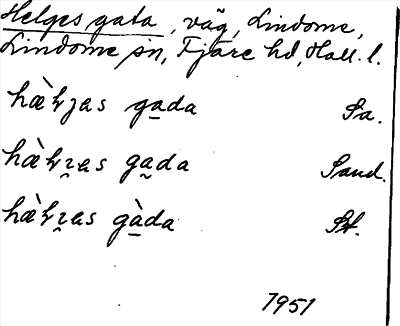 Helges gata, väg, Lindome,
Lindome sn, Fjäre hd, Hall. l.
hæ̀ɫȷas ga̱da Sa.
hæ̀ɫɪ̯as ga̱da Sand.
hæ̀ɫɪ̯as gà̱da St.
1951